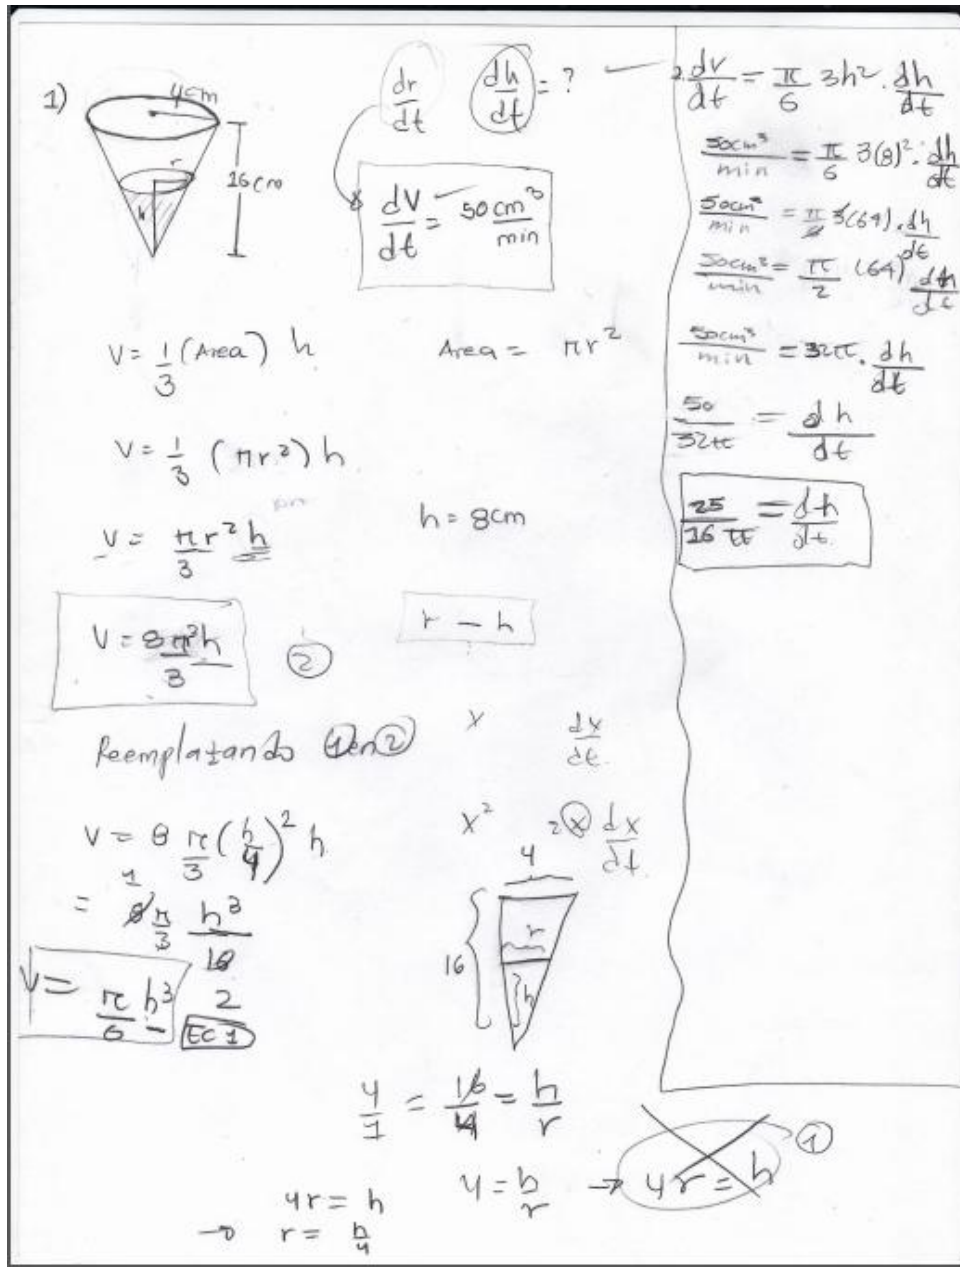 1)
4cm
r
h
16cm
dr/dt   dh/dt = ?
dV/dt = 50 cm³/min
V = 1/3 (Area) h   Area = πr²
V = 1/3 (πr²) h
V = πr²h/3   h = 8cm
V = 8πr²h/3   ②   r – h
Reemplazando ① en ②   x   dx/dt
V = 8 π/3 (h/4)² h   x²   2x dx/dt
= 8 π/3 h³/16
1
2
V = π/6 h³   EC 1
4
16
r
h
4/1 = 16/4 = h/r
4 = h/r → 4r = h   ①
4r = h
→ r = h/4
dv/dt = π/6 3h² · dh/dt
50cm³/min = π/6 3(8)² · dh/dt
50cm³/min = π/6 3(64) · dh/dt
50cm³/min = π/2 (64) dh/dt
50cm³/min = 32π · dh/dt
50/32π = dh/dt
25/16π = dh/dt